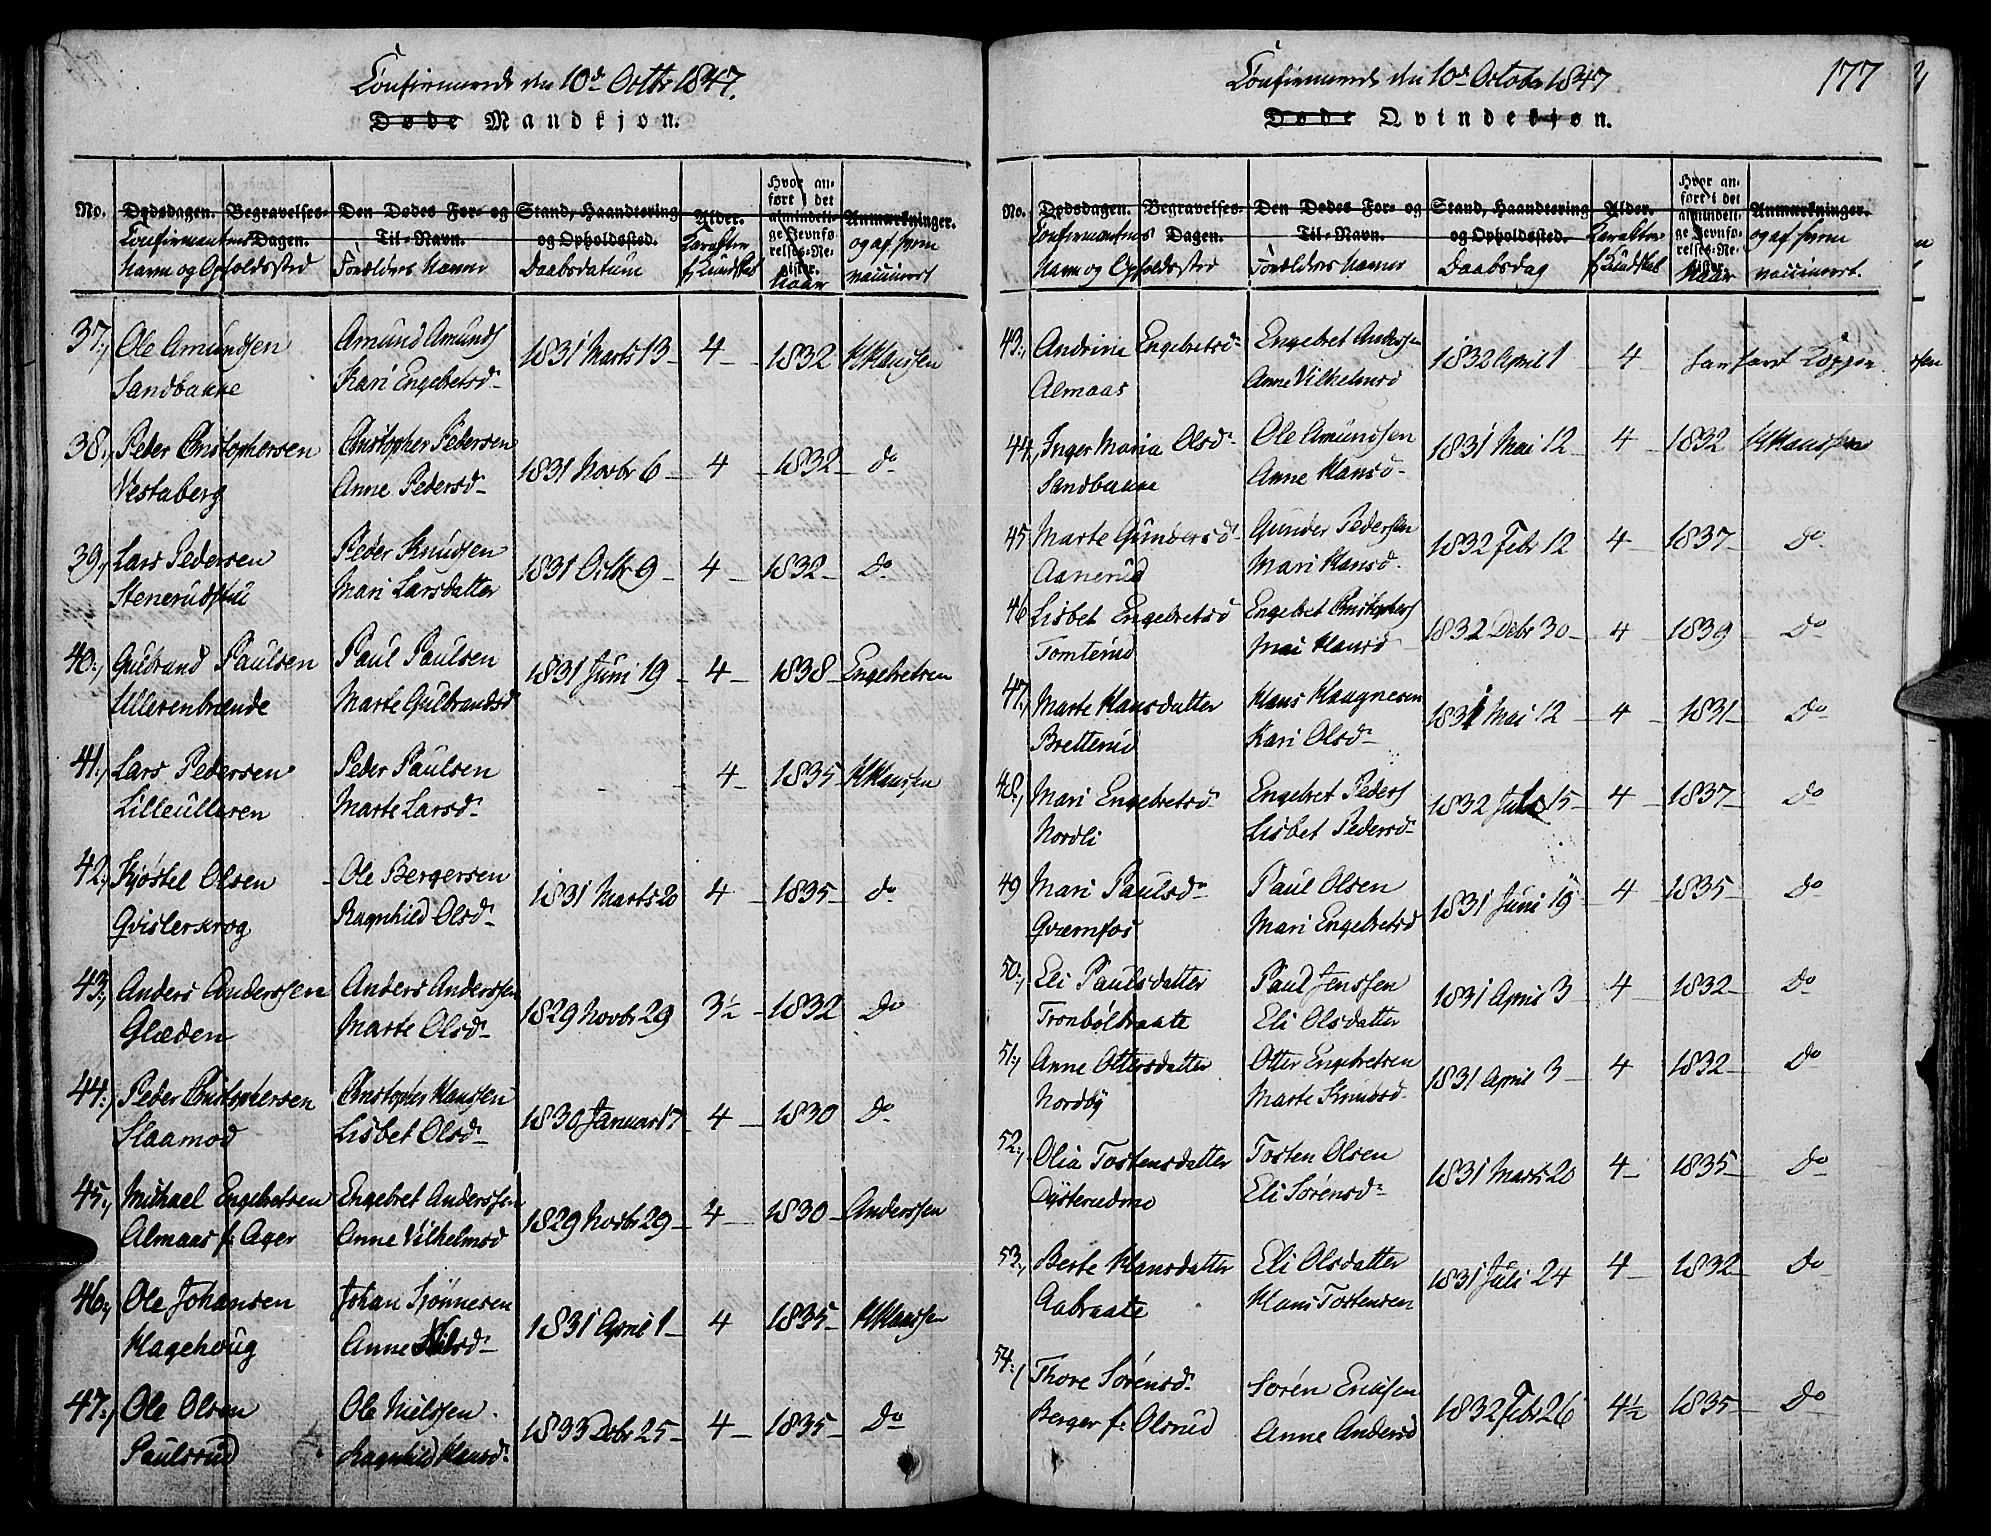 Confirmerede den 10d Octbr 1847.
Døde Mandkjøn.
No. Dødsdagen. Begravelses-Dagen. Den Dødes For- og Til-Navn. Stand, Haandtering og Opholdssted. Alder. Hvor anført i det almindelige Jevnførelses-Register. Anmærkninger.
Confirmantens Navn og Opholdssted Forældres Navne Daabsdatum Karakter f. Kundskab Naar og af hvem vaccineret
37, Ole Amundsen Amund Amunds 1831 Marts 13 4 1832 HHanssen
Sandbakke Kari Engebretsd
38, Peder Christophersen Christopher Pedersen 1831 Novbr 6 4 1832 do
Vestaberg Anne Pedersd
39, Lars Pedersen Peder Knudsen 1831 Octbr 9 4 1832 do
Stenerudstu Mari Larsdatter
40, Gulbrand Paulsen Paul Paulsen 1831 Juni 19 4 1838 Engebretsen
Ullerenbrænde Marte Gulbrandsd
41, Lars Pedersen Peder Paulsen 4 1835 HHanssen
Lilleulleren Marte Larsd
42, Kjøstel Olsen Ole Bergersen 1831 Marts 20 4 1835 do
Gvislerkrog Ragnhild Olsd
43, Anders Anderssen Anders Anderssen 1829 Novbr 29 3½ 1832 Do
Glæden Marte Olsd
44, Peder Christophersen Christopher Hanssen 1830 Januar 17 4 1830 do
Slaamod Lisbet Olsd
45, Michael Engebretsen Engebret Anderssen 1829 Novbr 29 4 1830 Anderssen
Almaas f: Ager Anne Vilhelmsd
46, Ole Johansen Johan Sjønnesen 1831 April 1 4 1835 HHanssen
Hagehoug Anne
47, Ole Olsen Ole Nielssen 1833 Debr 25 4 1835 Do
Paulsrud Ragnhild Hansd
Confirmerede den 10d October 1847
177
Døde Qvindekjøn.
No. Dødsdagen. Begravelses-Dagen. Den Dødes For- og Til-Navn. Stand, Haandtering og Opholdssted. Alder. Hvor anført i det almindelige Jevnførelses-Register. Anmærkninger.
Confirmantens Navn og Opholdssted Forældres Navne Daabsdag Karakter f. Kundskab Naar og af hvem vaccineret.
43, Andrine Engebretsd Engebret Anderssen 1832 April 1 4 har havt Kopper
Almaas Anne Vilhelmsd
44, Inger Maria Olsd Ole Amundsen 1831 Mai 12 4 1832 HHanssen
Sandbakke Anne Hansd
45 Marte Gundersd Gunder Pederssen 1832 Febr 12 4 1837 do
Aanerud Mari Hansd
46 Lisbet Engebretsd Engebret Christophers 1832 Debr 30 4 1839 Do
Tomterud Mai Hansd
47, Marte Hansdatter Hans Haagnesen 1831 Mai 12 4 1831 Do
Bretterud Kari Olsd
48, Mari Engebretsd Engebret Peders 1832 Juli 15 4 1837 do
Nordli Lisbet Pedersd
49 Mari Paulsd Paul Olsen 1831 Juni 19 4 1835 do
Gvæmfos Mari Engebretsd
50, Eli Paulsdatter Paul Jenssen 1831 April 3 4 1832 do
Tronbølbraate Eli Olsdatter
51, Anne Ottersdatter Otter Engebretsen 1831 April 3 4 1832 Do
Nordby Marte Knudsd
52, Olia Tostensdatter Tosten Olsen 1831 Marts 20 4 1835 do
Dysterudmo Eli Sørensd
53, Berte Hansdatter Eli Olsdatter 1831 Juli 24 4 1832 do
Aabraate Hans Tostensen
54, Thore Sørensd Sørén Erikssen 1832 Febr 26 4½ 1835 Do
Berger f: Olsrud Anne Andersd